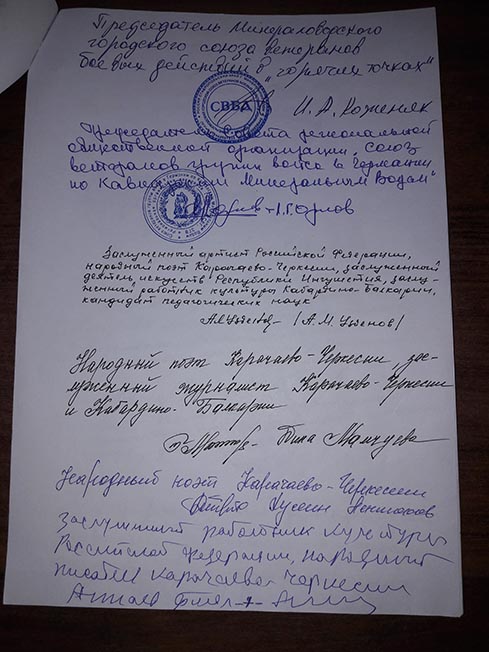 Председатель Минераловодского
городского союза ветеранов
боевых действий в „горячих точках"
СВБД
И. А. Коженяк
Председатель Совета региональной
общественной организации „Союз
ветеранов группы войск в Германии
по Кавказским Минеральным Водам"
Заслуженный артист Российской Федерации,
народный поэт Карачаево-Черкесии, заслуженный
деятель искусств Республики Ингушетия, заслу-
женный работник культуры Кабардино-Балкарии,
кандидат педагогических наук
/А. М. Узденов/
Народный поэт Карачаево-Черкесии, зас-
луженный журналист Карачаево-Черкесии
и Кабардино-Балкарии
Билал Мамчуева
Народный поэт Карачаево-Черкесии
Заслуженный работник культуры
Российской Федерации, народный
писатель Карачаево-Черкесии